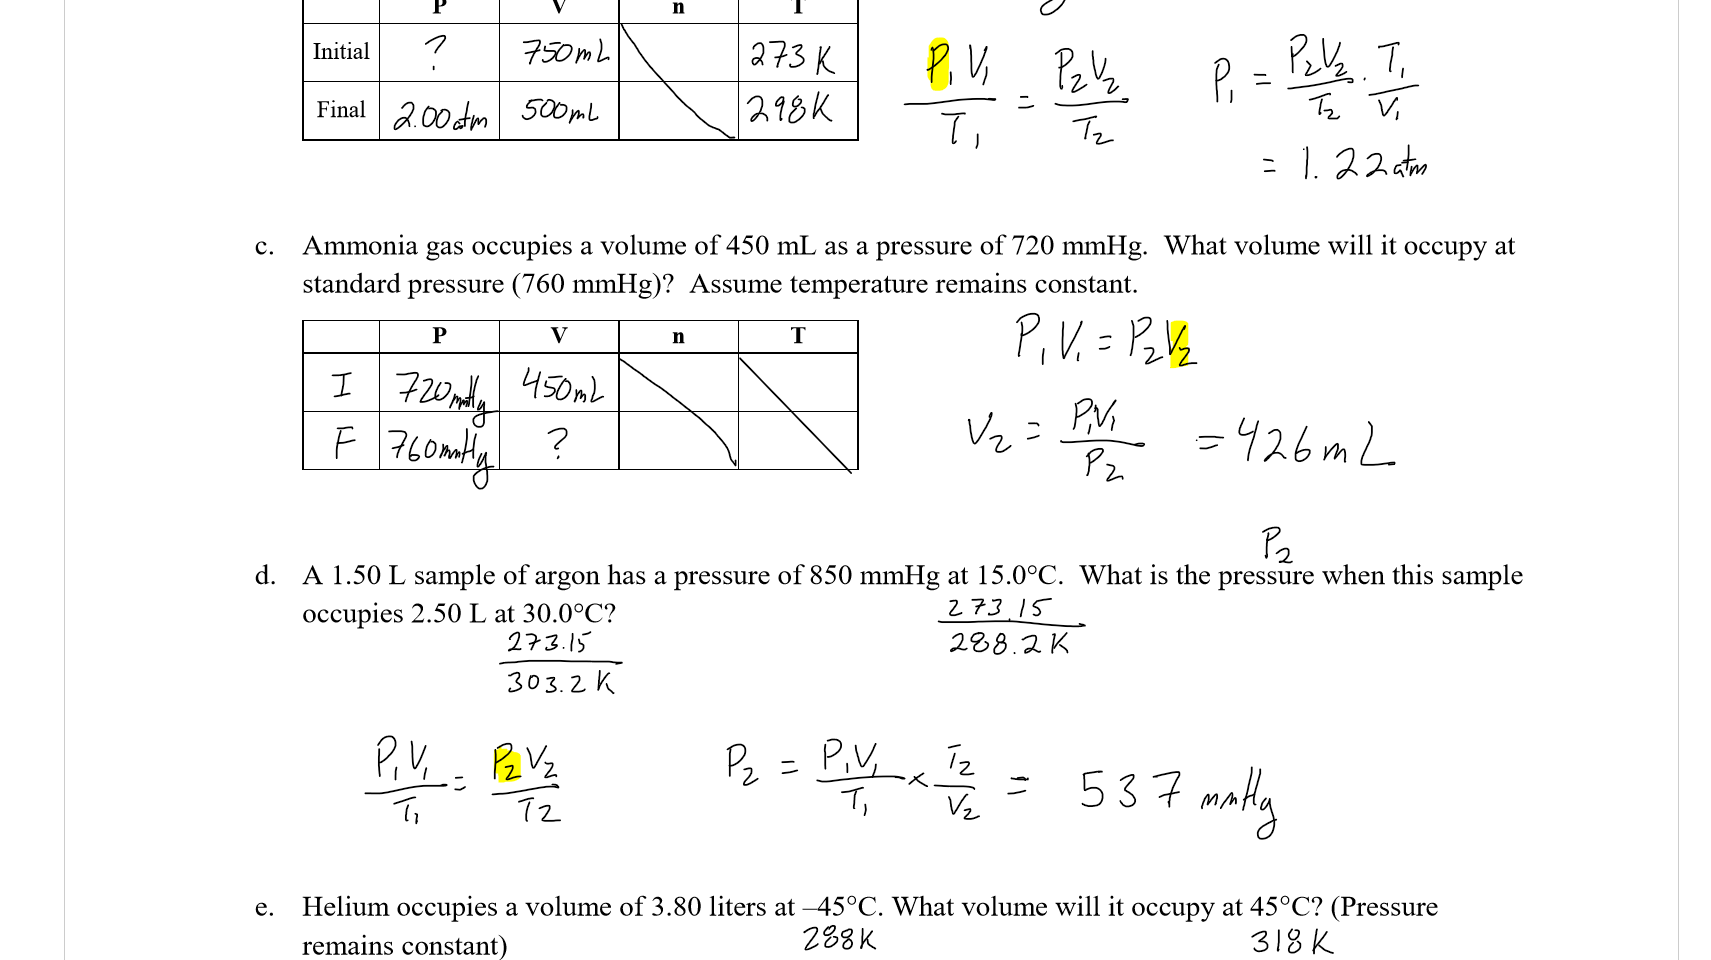 P V n T
Initial ? 750mL 273 K
Final 2.00atm 500mL 298K
P₁V₁/T₁ = P₂V₂/T₂
P₁ = P₂V₂/T₂ · T₁/V₁
= 1.22atm
c. Ammonia gas occupies a volume of 450 mL as a pressure of 720 mmHg. What volume will it occupy at
standard pressure (760 mmHg)? Assume temperature remains constant.
P V n T
I 720mmHg 450mL
F 760mmHg ?
P₁V₁ = P₂V₂
V₂ = P₁V₁/P₂ = 426mL
P₂
d. A 1.50 L sample of argon has a pressure of 850 mmHg at 15.0°C. What is the pressure when this sample
occupies 2.50 L at 30.0°C?
273.15
288.2K
273.15
303.2 K
P₁V₁/T₁ = P₂V₂/T2
P₂ = P₁V₁/T₁ × T₂/V₂ = 537 mmHg
e. Helium occupies a volume of 3.80 liters at –45°C. What volume will it occupy at 45°C? (Pressure
remains constant)
288K
318K